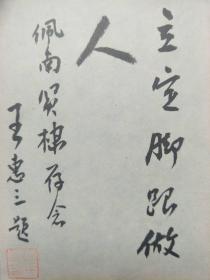 立定脚跟做
人
佩南贤棣存念
王惠三题